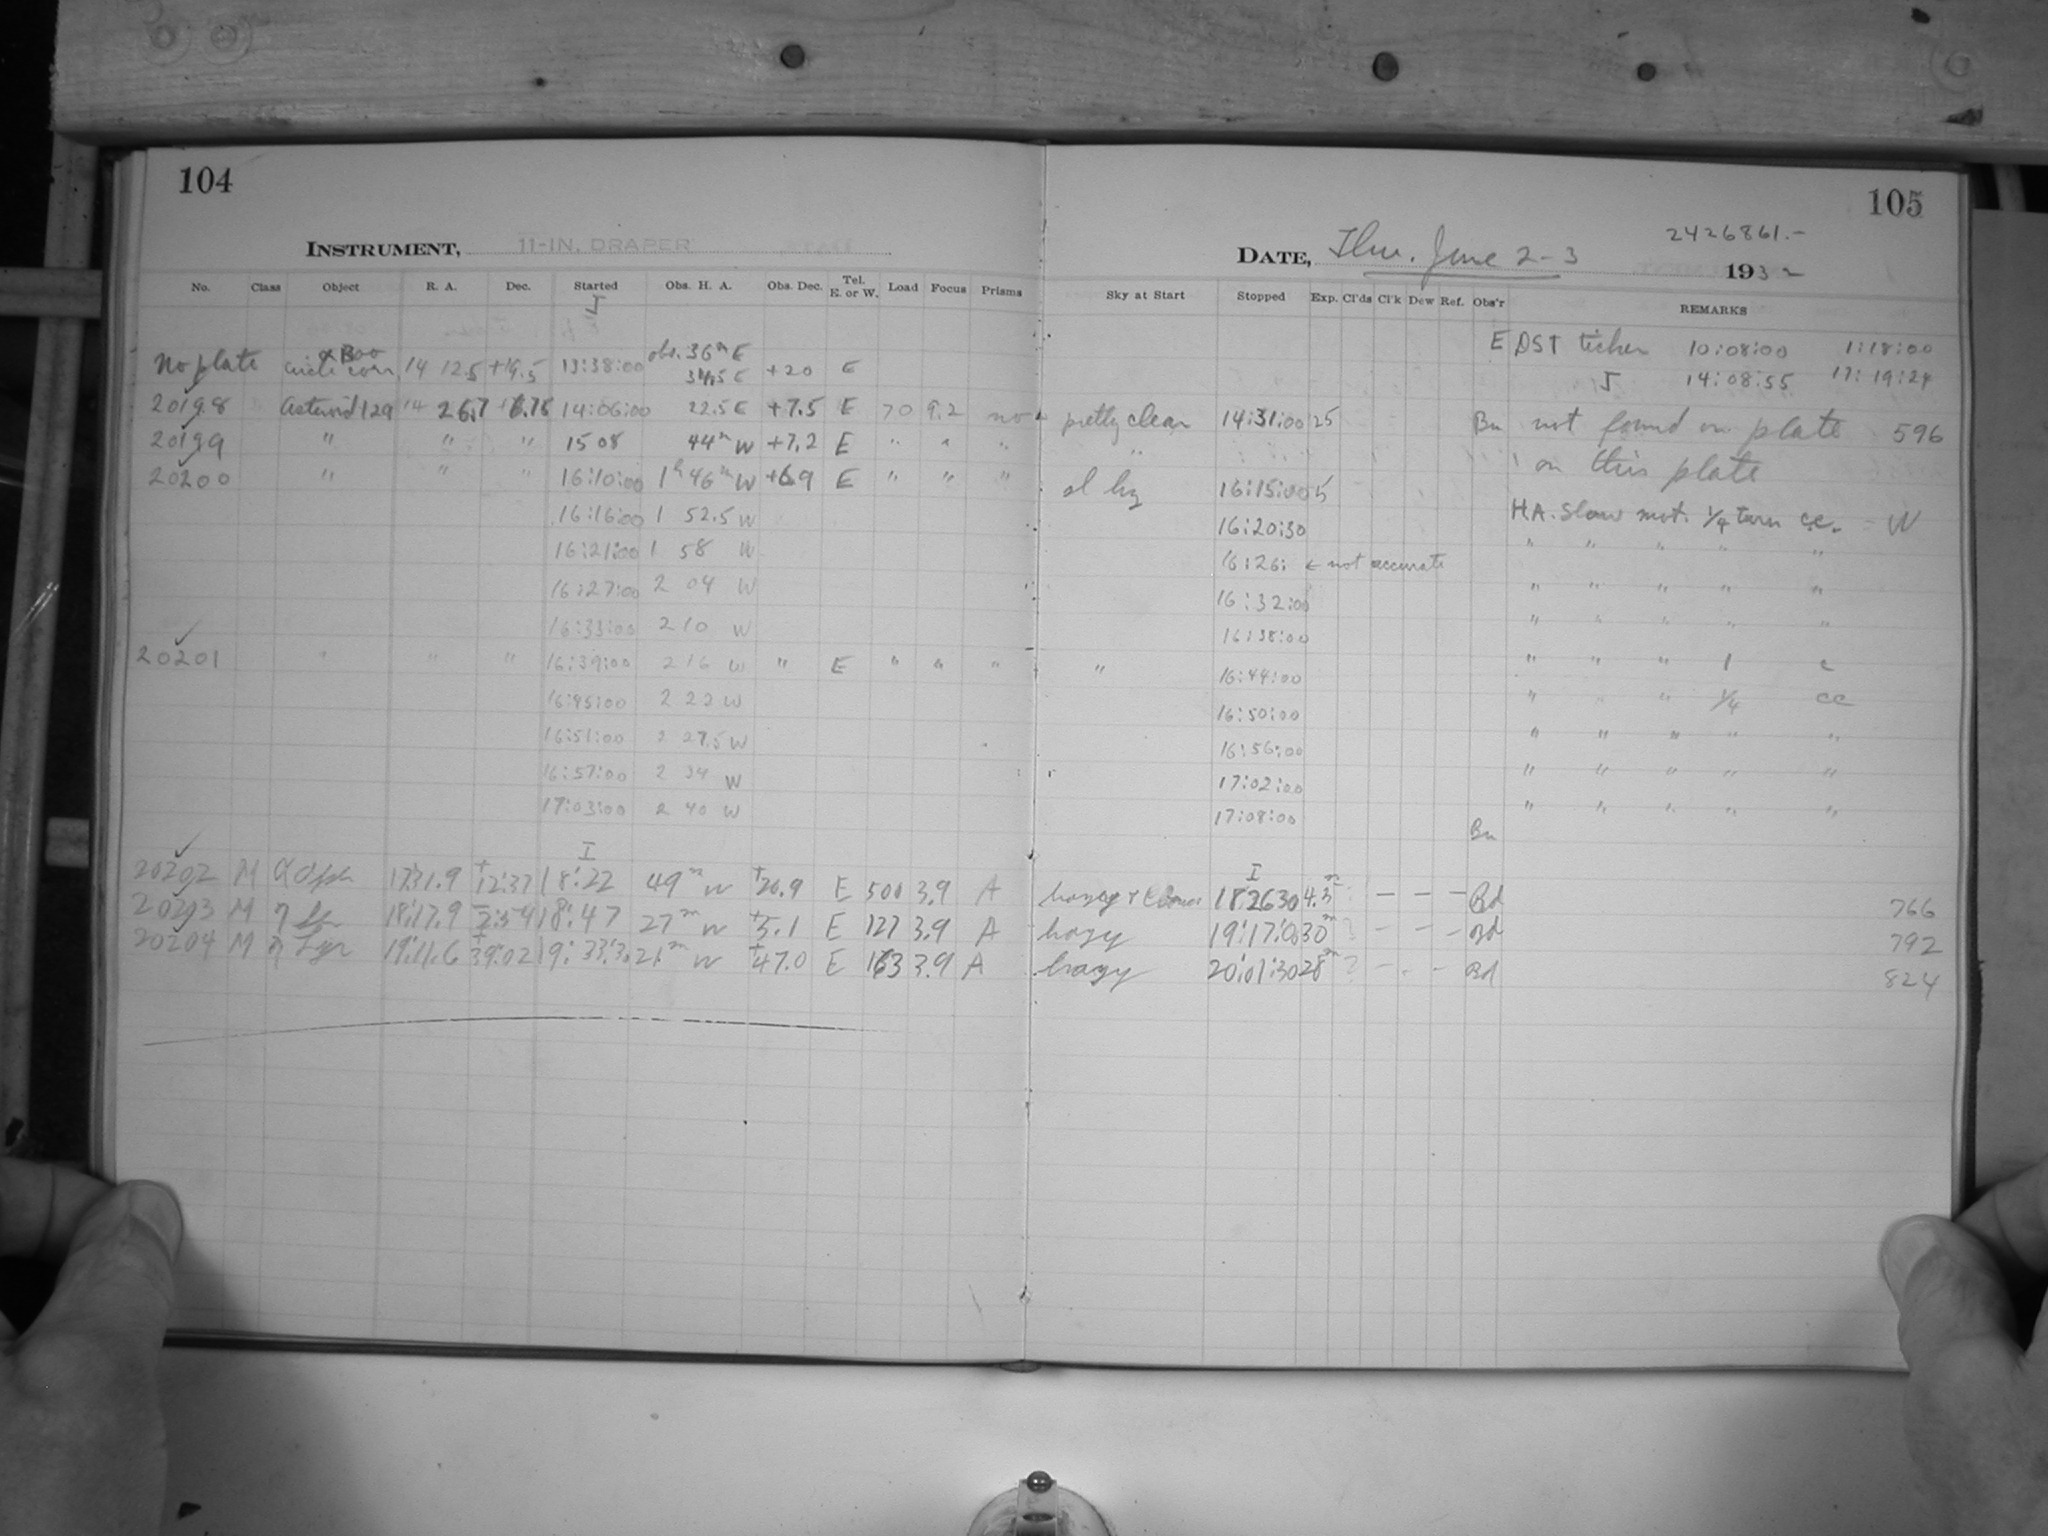 104
INSTRUMENT, 11-IN. DRAPER
No. Class Object R. A. Dec. Started Obs. H. A. Obs. Dec. Tel. E. or W. Load Focus Prisms
No plate α Boo circle corr. 14 12.5 +19.5 13:38:00 obs. 36m E +20 E
20198 Asteroid 129 14 26.7 14:06:00 22.5 E +7.5 E 70 9.2 no
20199 " " " 15 08 44m W +7.2 E " " "
20200 " " " 16:10:00 1h 46m W +6.9 E " " "
16:16:00 1 52.5 W
16:21:00 1 58 W
16:27:00 2 04 W
16:33:00 2 10 W
20201 " " " 16:39:00 2 16 W " E " " "
16:45:00 2 22 W
16:51:00 2 27.5 W
16:57:00 2 34 W
17:03:00 2 40 W
I
20202 M α Oph 17:31.9 +12:37 18:22 49m W E 500 3.9 A
20203 M η Ser 18:17.9 -2:54 18:47 27m W +5.1 E 127 3.9 A
20204 M η Lyr 19:11.6 +39:02 19:33:3 21m W +47.0 E 163 3.9 A
105
2426861.-
DATE, Thu. June 2-3 1932
Sky at Start Stopped Exp. Cl'ds Cl'k Dew Ref. Obs'r REMARKS
EDST ticker 10:08:00 1:18:00
J 14:08:55 17:19:24
pretty clear 14:31:00 25 Bn not found on plate 596
" on this plate
sl hzy 16:15:00 5
16:20:30 HA. slow mot. 1/4 turn cc. = W
16:26: ← not accurate " " " " "
16:32:00 " " " " "
16:38:00 " " " " "
" 16:44:00 " " " 1 c
16:50:00 " " " 1/4 cc
16:56:00 " " " " "
17:02:00 " " " " "
17:08:00 " " " " "
Bn
I
hazy + 18:26:30 4.3m ? — — — Bd 766
hazy 19:17:0 30m ? — — — Bd 792
hazy 20:01:30 28m ? — — — Bd 824